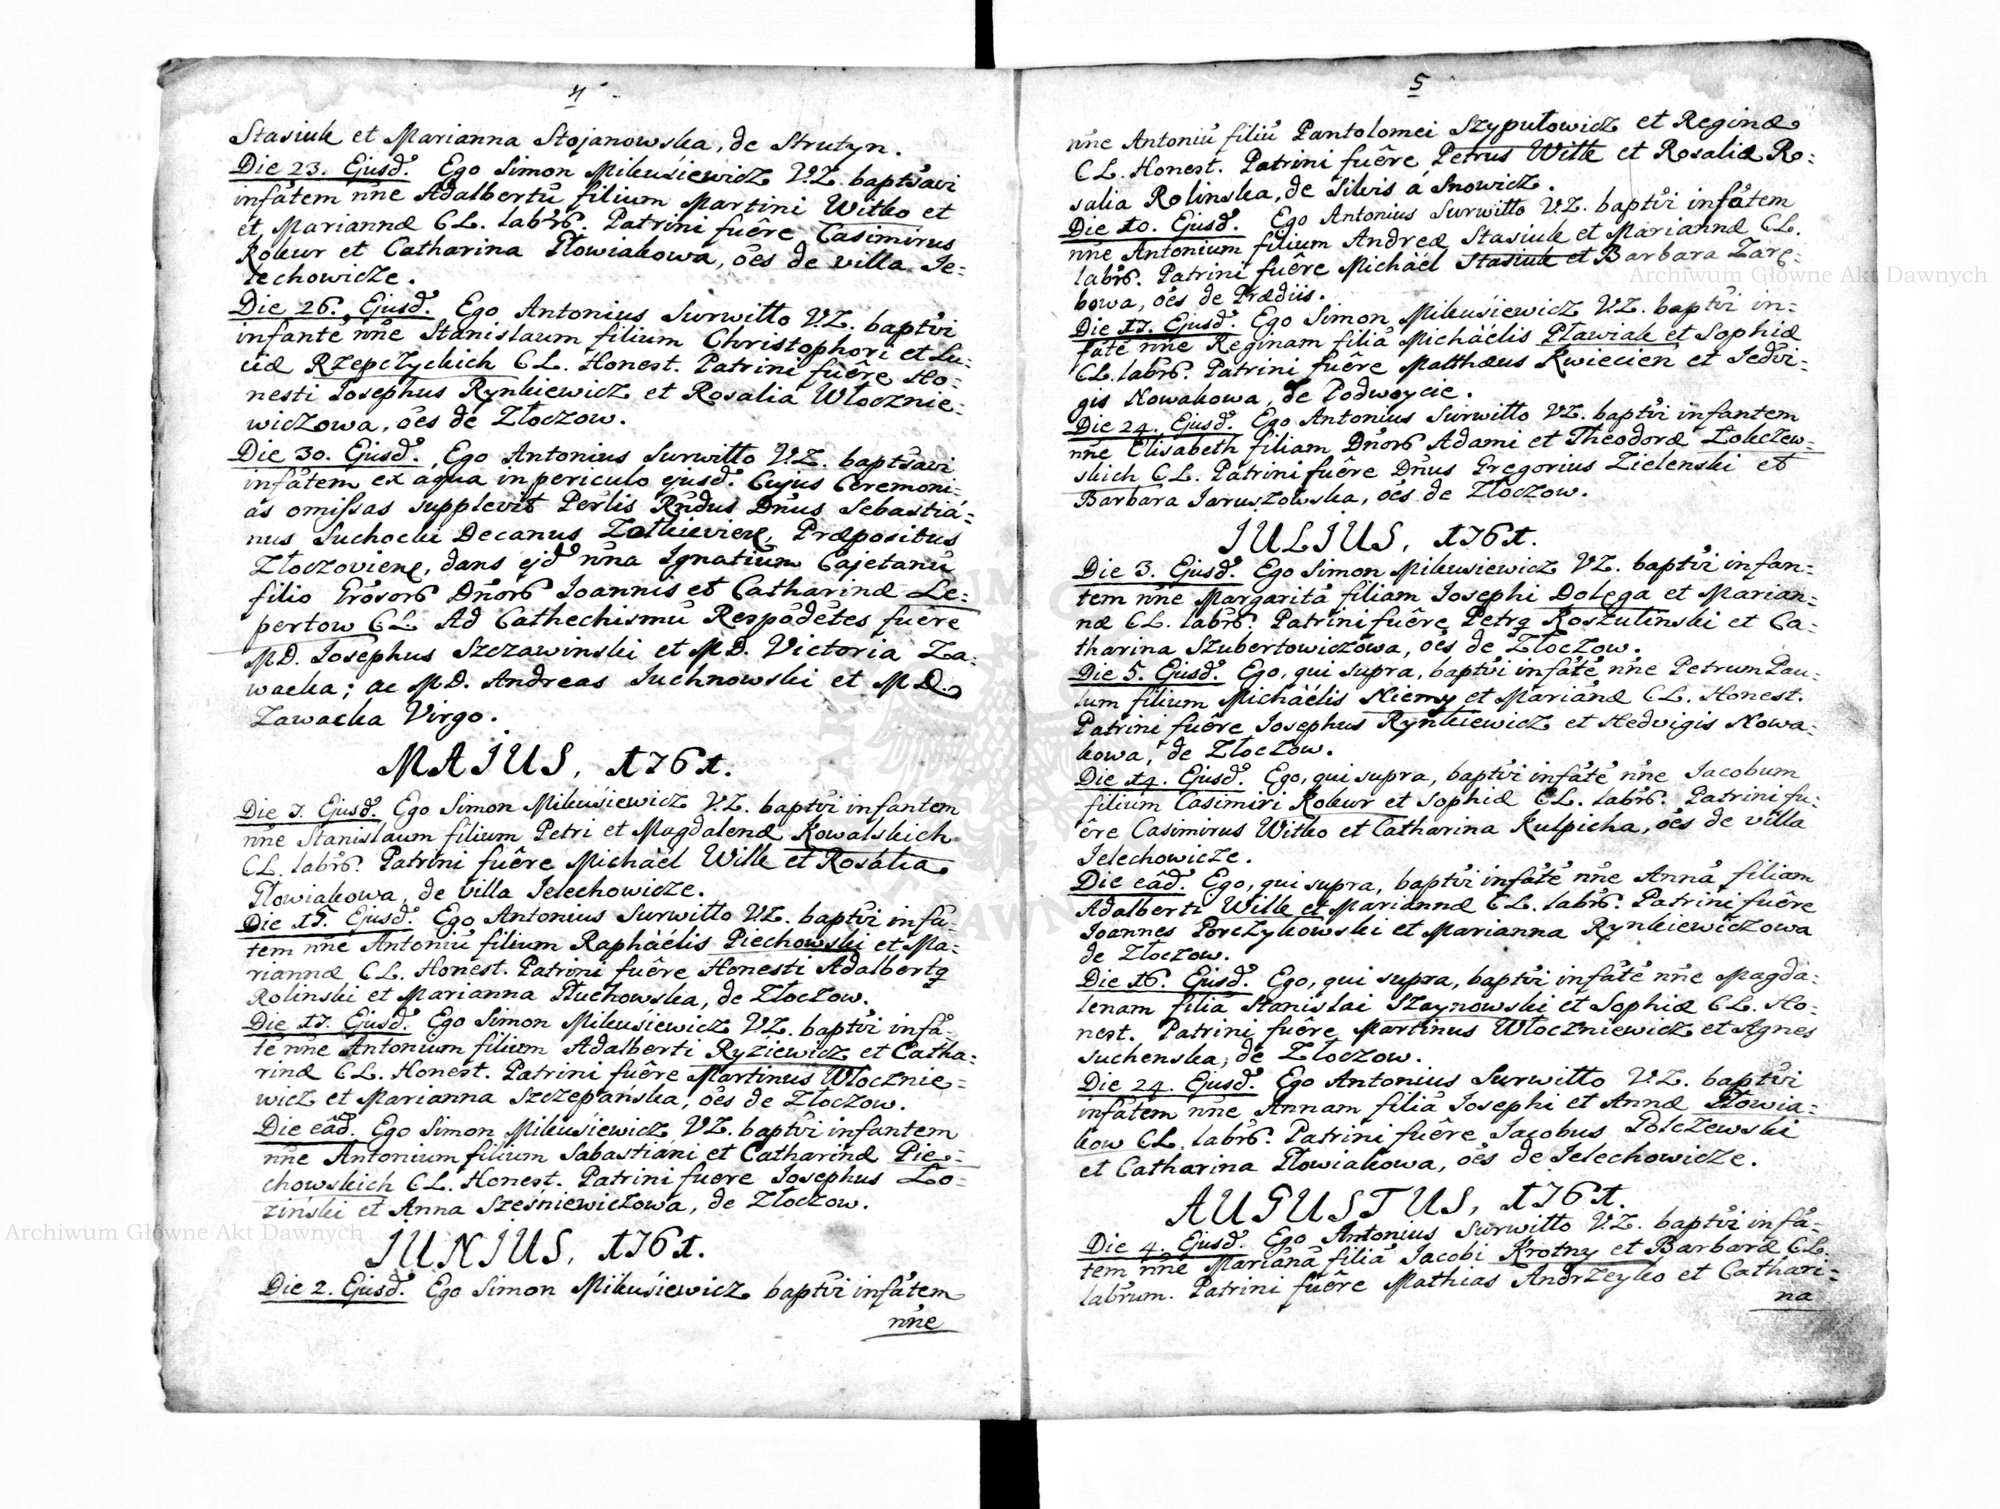 4
Stasiuk et Marianna Stojanowska, de Strutyn.
Die 23. Ejusd. Ego Simon Mikuśiewicz V.Z. baptisavi
infãtem nñe Adalbertũ filium Martini Witko et
et Mariannæ CL. labrõ. Patrini fuêre Casimirus
Robur et Catharina Płowiakowa, oẽs de villa Je=
lechowicze.
Die 26. Ejusd. Ego Antonius Surwitto V.Z. baptĩvi
infantẽ nñe Stanislaum filium Christophori et Lu=
ciæ Rzepczyckich CL. Honest. Patrini fuêre Ho=
nesti Josephus Rynkiewicz et Rosalia Włocznie=
wiczowa, oẽs de Złoczow.
Die 30. Ejusd. Ego Antonius Surwitto V.Z. baptisavi
infãtem ex aqua in periculo ejusd. Cujus Ceremoni=
ás omissas supplevit Perlis Rñdus Dñus Sebastiá=
nus Suchocki Decanus Zolkievien, Præpositus
Złoczovien, dans ejd nña Ignatium Cajetanũ
filio Grõsorõ Dñorõ Joannis et Catharinæ Le=
pertow CL. Ad Cathechismũ Respõdẽtes fuêre
MD. Josephus Szczawinski et MD. Victoria Za=
wacka; ac MD. Andreas Suchnowski et MD.
Zawacka Virgo.
MAJUS, 1761.
Die 7. Ejusd. Ego Simon Mikuśiewicz V.Z. baptĩvi infantem
nñe Stanislaum filium Petri et Magdalenæ Kowalskich
CL. labrõ. Patrini fuêre Michaël Wilk et Rosalia
Płowiakowa, de villa Jelechowicze.
Die 15. Ejusd. Ego Antonius Surwitto V.Z. baptĩvi infã=
tem nñe Antoniũ filium Raphaëlis Piechowski et Ma=
riannæ CL. Honest. Patrini fuêre Honesti Adalbertq
Rolinski et Marianna Płuchowska, de Złoczow.
Die 17. Ejusd. Ego Simon Mikuśiewicz V.Z. baptĩvi infã=
tẽ nñe Antonium filium Adalberti Ryźiewicz et Catha=
rinæ CL. Honest. Patrini fuêre Martinus Włocznie=
wicz et Marianna Szczepańska, oẽs de Złoczow.
Die eâd. Ego Simon Mikuśiewicz V.Z. baptĩvi infantem
nñe Antonium filium Sabastiáni et Catharinæ Pie=
chowskich CL. Honest. Patrini fuere Josephus Lo=
ziński et Anna Sześniewiczowa, de Złoczow.
JUNIUS, 1761.
Die 2. Ejusd. Ego Simon Mikuśiewicz baptĩvi infãtem
nñe
5
nñe Antoniũ filiũ Pantolomei Szypułowicz et Reginæ
CL. Honest. Patrini fuêre Petrus Wilk et Rosaliæ Ro=
salia Rolinska, de Silvis á Snowicz.
Die 10. Ejusd. Ego Antonius Surwitto V.Z. baptĩvi infãtem
nñe Antonium filium Andreæ Stasiuk et Mariannæ CL.
labrõ. Patrini fuêre Michaël Stasiuk et Barbara Zarę=
bowa, oẽs de Prædiis.
Die 17. Ejusd. Ego Simon Mikuśiewicz V.Z. baptĩvi in=
fãtẽ nñe Reginam filiã Michaëlis Pławiak et Sophiæ
CL. labrõ. Patrini fuêre Matthæus Kwiecien et Jedvi=
gis Nowakowa, de Podwoycie.
Die 24. Ejusd. Ego Antonius Surwitto V.Z. baptĩvi infantem
nñe Elisabeth filiam Dñorõ Adami et Theodoræ Łokczew=
skich CL. Patrini fuêre Dñus Gregorius Zielenski et
Barbara Jaruszowska, oẽs de Złoczow.
JULIUS, 1761.
Die 3. Ejusd. Ego Simon Mikusiewicz V.Z. baptĩvi infan=
tem nñe Margaritã filiam Josephi Dolęga et Marian=
næ CL. labrõ. Patrini fuêre Petrq Koszulinski et Ca=
tharina Szubertowiczowa, oẽs de Złoczow.
Die 5. Ejusd. Ego, qui supra, baptĩvi infãtẽ nñe Petrum Pau=
lum filium Michaëlis Niemy et Mariãnæ CL. Honest.
Patrini fuêre Josephus Rynkiewicz et Hedvigis Nowa=
kowa, de Złoczow.
Die 14. Ejusd. Ego, qui supra, baptĩvi infãtẽ nñe Jacobum
filium Casimiri Robur et Sophiæ CL. labrõ. Patrini fu=
êre Casimirus Witko et Catharina Kulpicha, oẽs de villa
Jelechowicze.
Die eâd. Ego, qui supra, baptĩvi infãtẽ nñe Annã filiam
Adalberti Wilk et Mariannæ CL. labrõ. Patrini fuêre
Joannes Porczykowski et Marianna Rynkiewiczowa
de Złoczow.
Die 16. Ejusd. Ego, qui supra, baptĩvi infãtẽ nñe Magda=
lenam filiã Stanislai Szaynowski et Sophiæ CL. Ho=
nest. Patrini fuêre Martinus Włoczniewicz et Agnes
Suchenska, de Złoczow.
Die 24. Ejusd. Ego Antonius Surwitto V.Z. baptĩvi
infãtem nñe Annam filiã Josephi et Annæ Płowia=
kow CL. labrõ. Patrini fuêre Jacobus Polczewski
et Catharina Płowiakowa, oẽs de Jelechowicze.
AUGUSTUS, 1761.
Die 4. Ejusd. Ego Antonius Surwitto V.Z. baptĩvi infã=
tem nñe Mariãnã filiã Jacobi Krotny et Barbaræ CL.
labrum. Patrini fuêre Mathias Andrzeyko et Cathari=
na
Archiwum Główne Akt Dawnych
Archiwum Główne Akt Dawnych